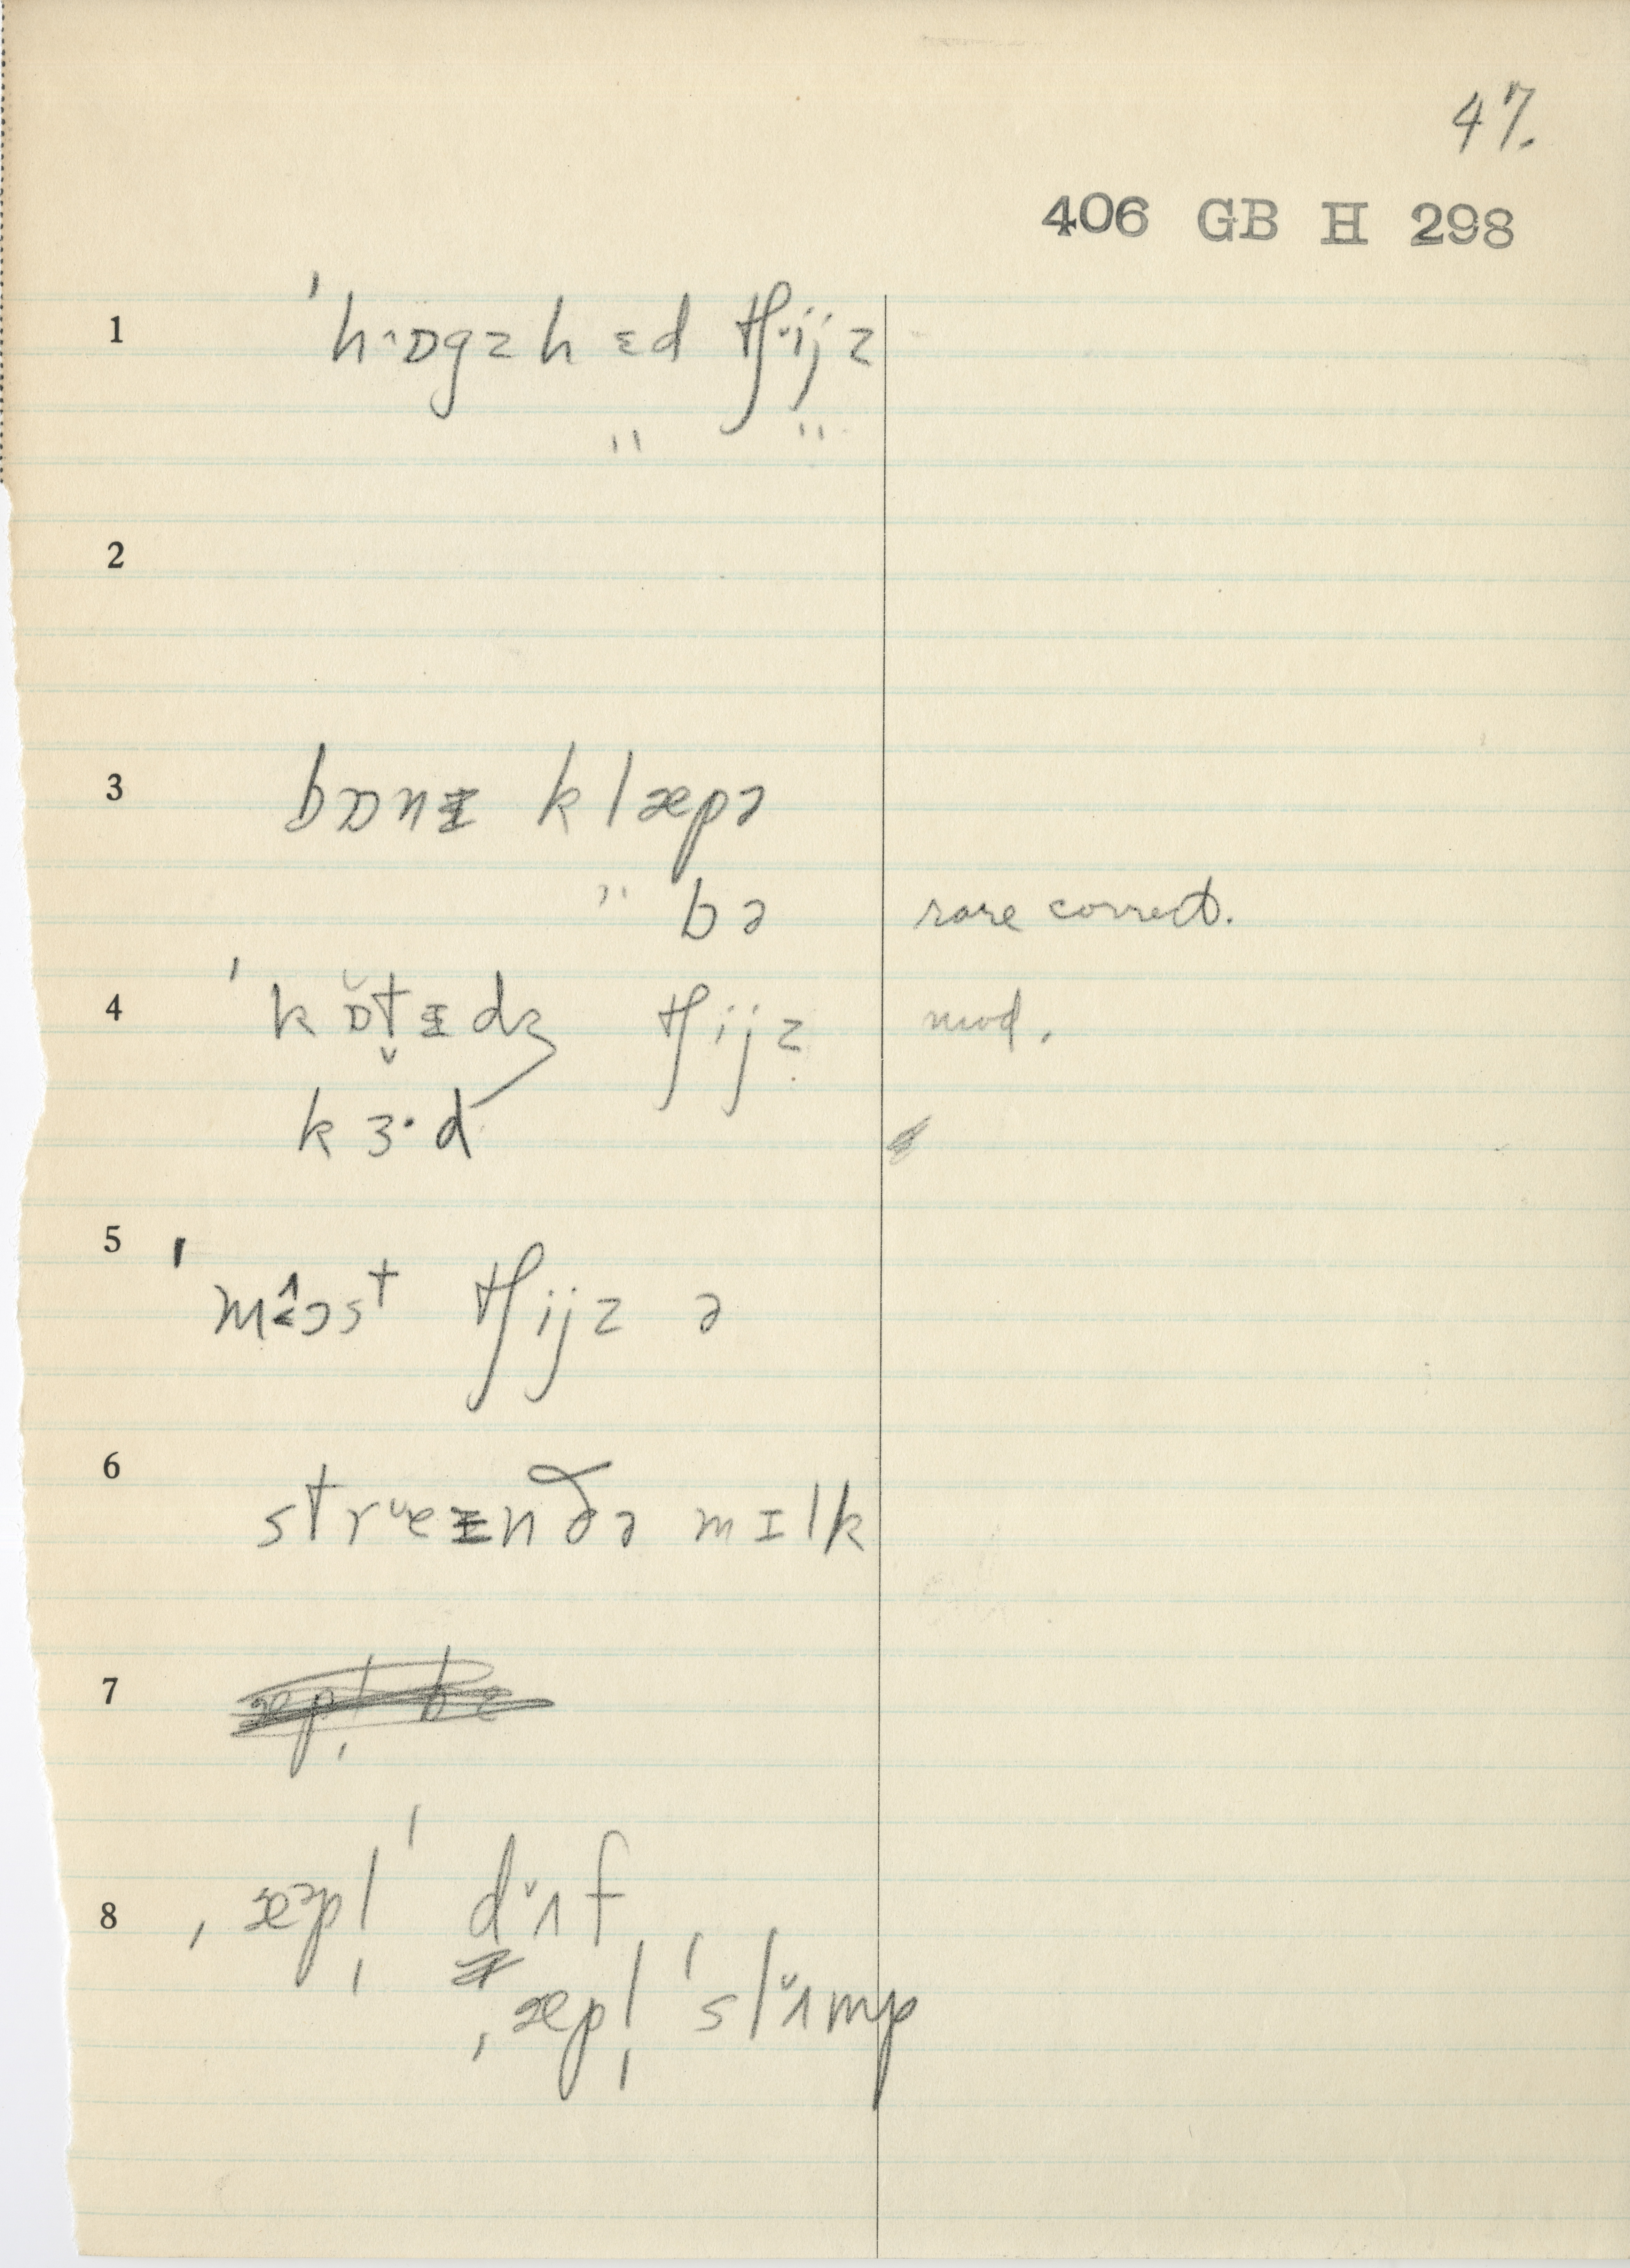 47.
406 GB H 298
1 ˈh‧ɒgzhɛd tʃ‧ijz
" "
2
3 bɒnɨ klæpə
" bə rare correct.
4 ˈkɒ̆t̬ɨdʒ tʃijz mod.
kɜ‧d
5 ˈmɛ̂ɔst tʃijz ə
6 streɨnðə mɪlk
7
8 ˌæpl̩ ˈdʌf
ˌæpl̩ ˈslʌmp